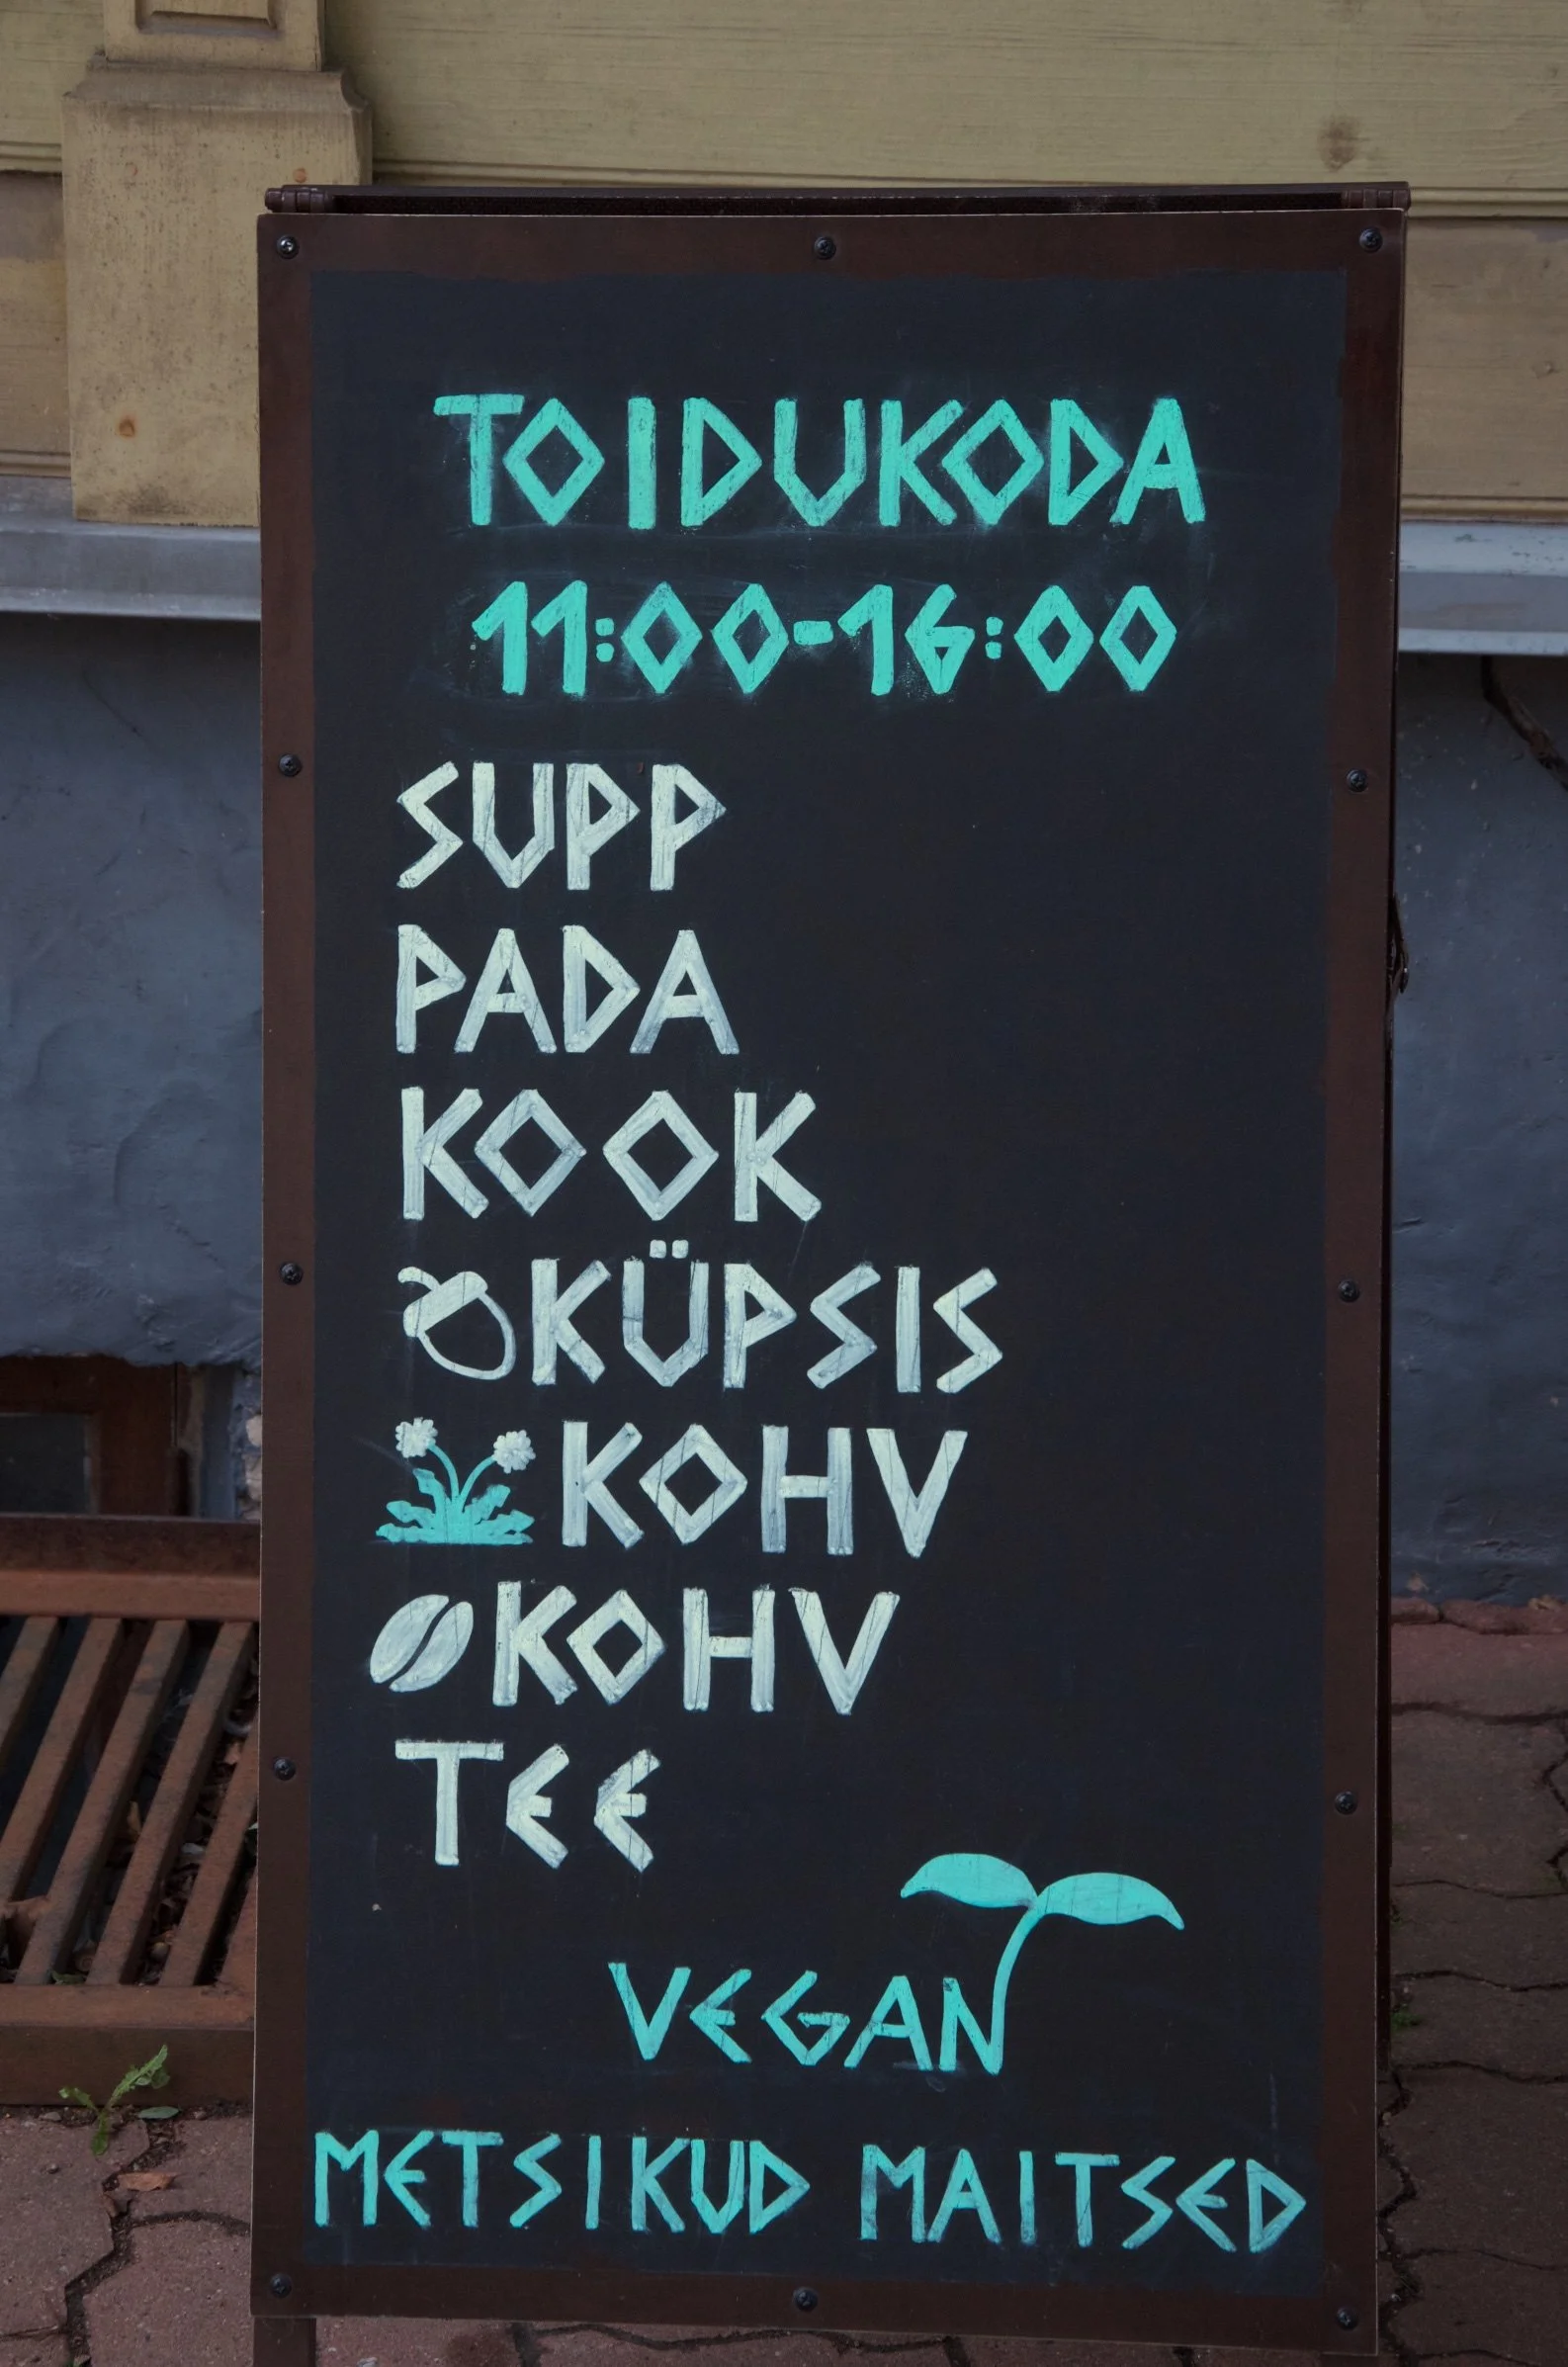 TOIDUKODA
11:00-16:00
SUPP
PADA
KOOK
KÜPSIS
KOHV
KOHV
TEE
VEGAN
METSIKUD MAITSED